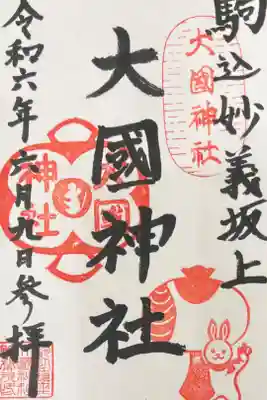 駒込妙義坂上
大國神社
大國神社
大国
神社
令和六年六月九日参拝